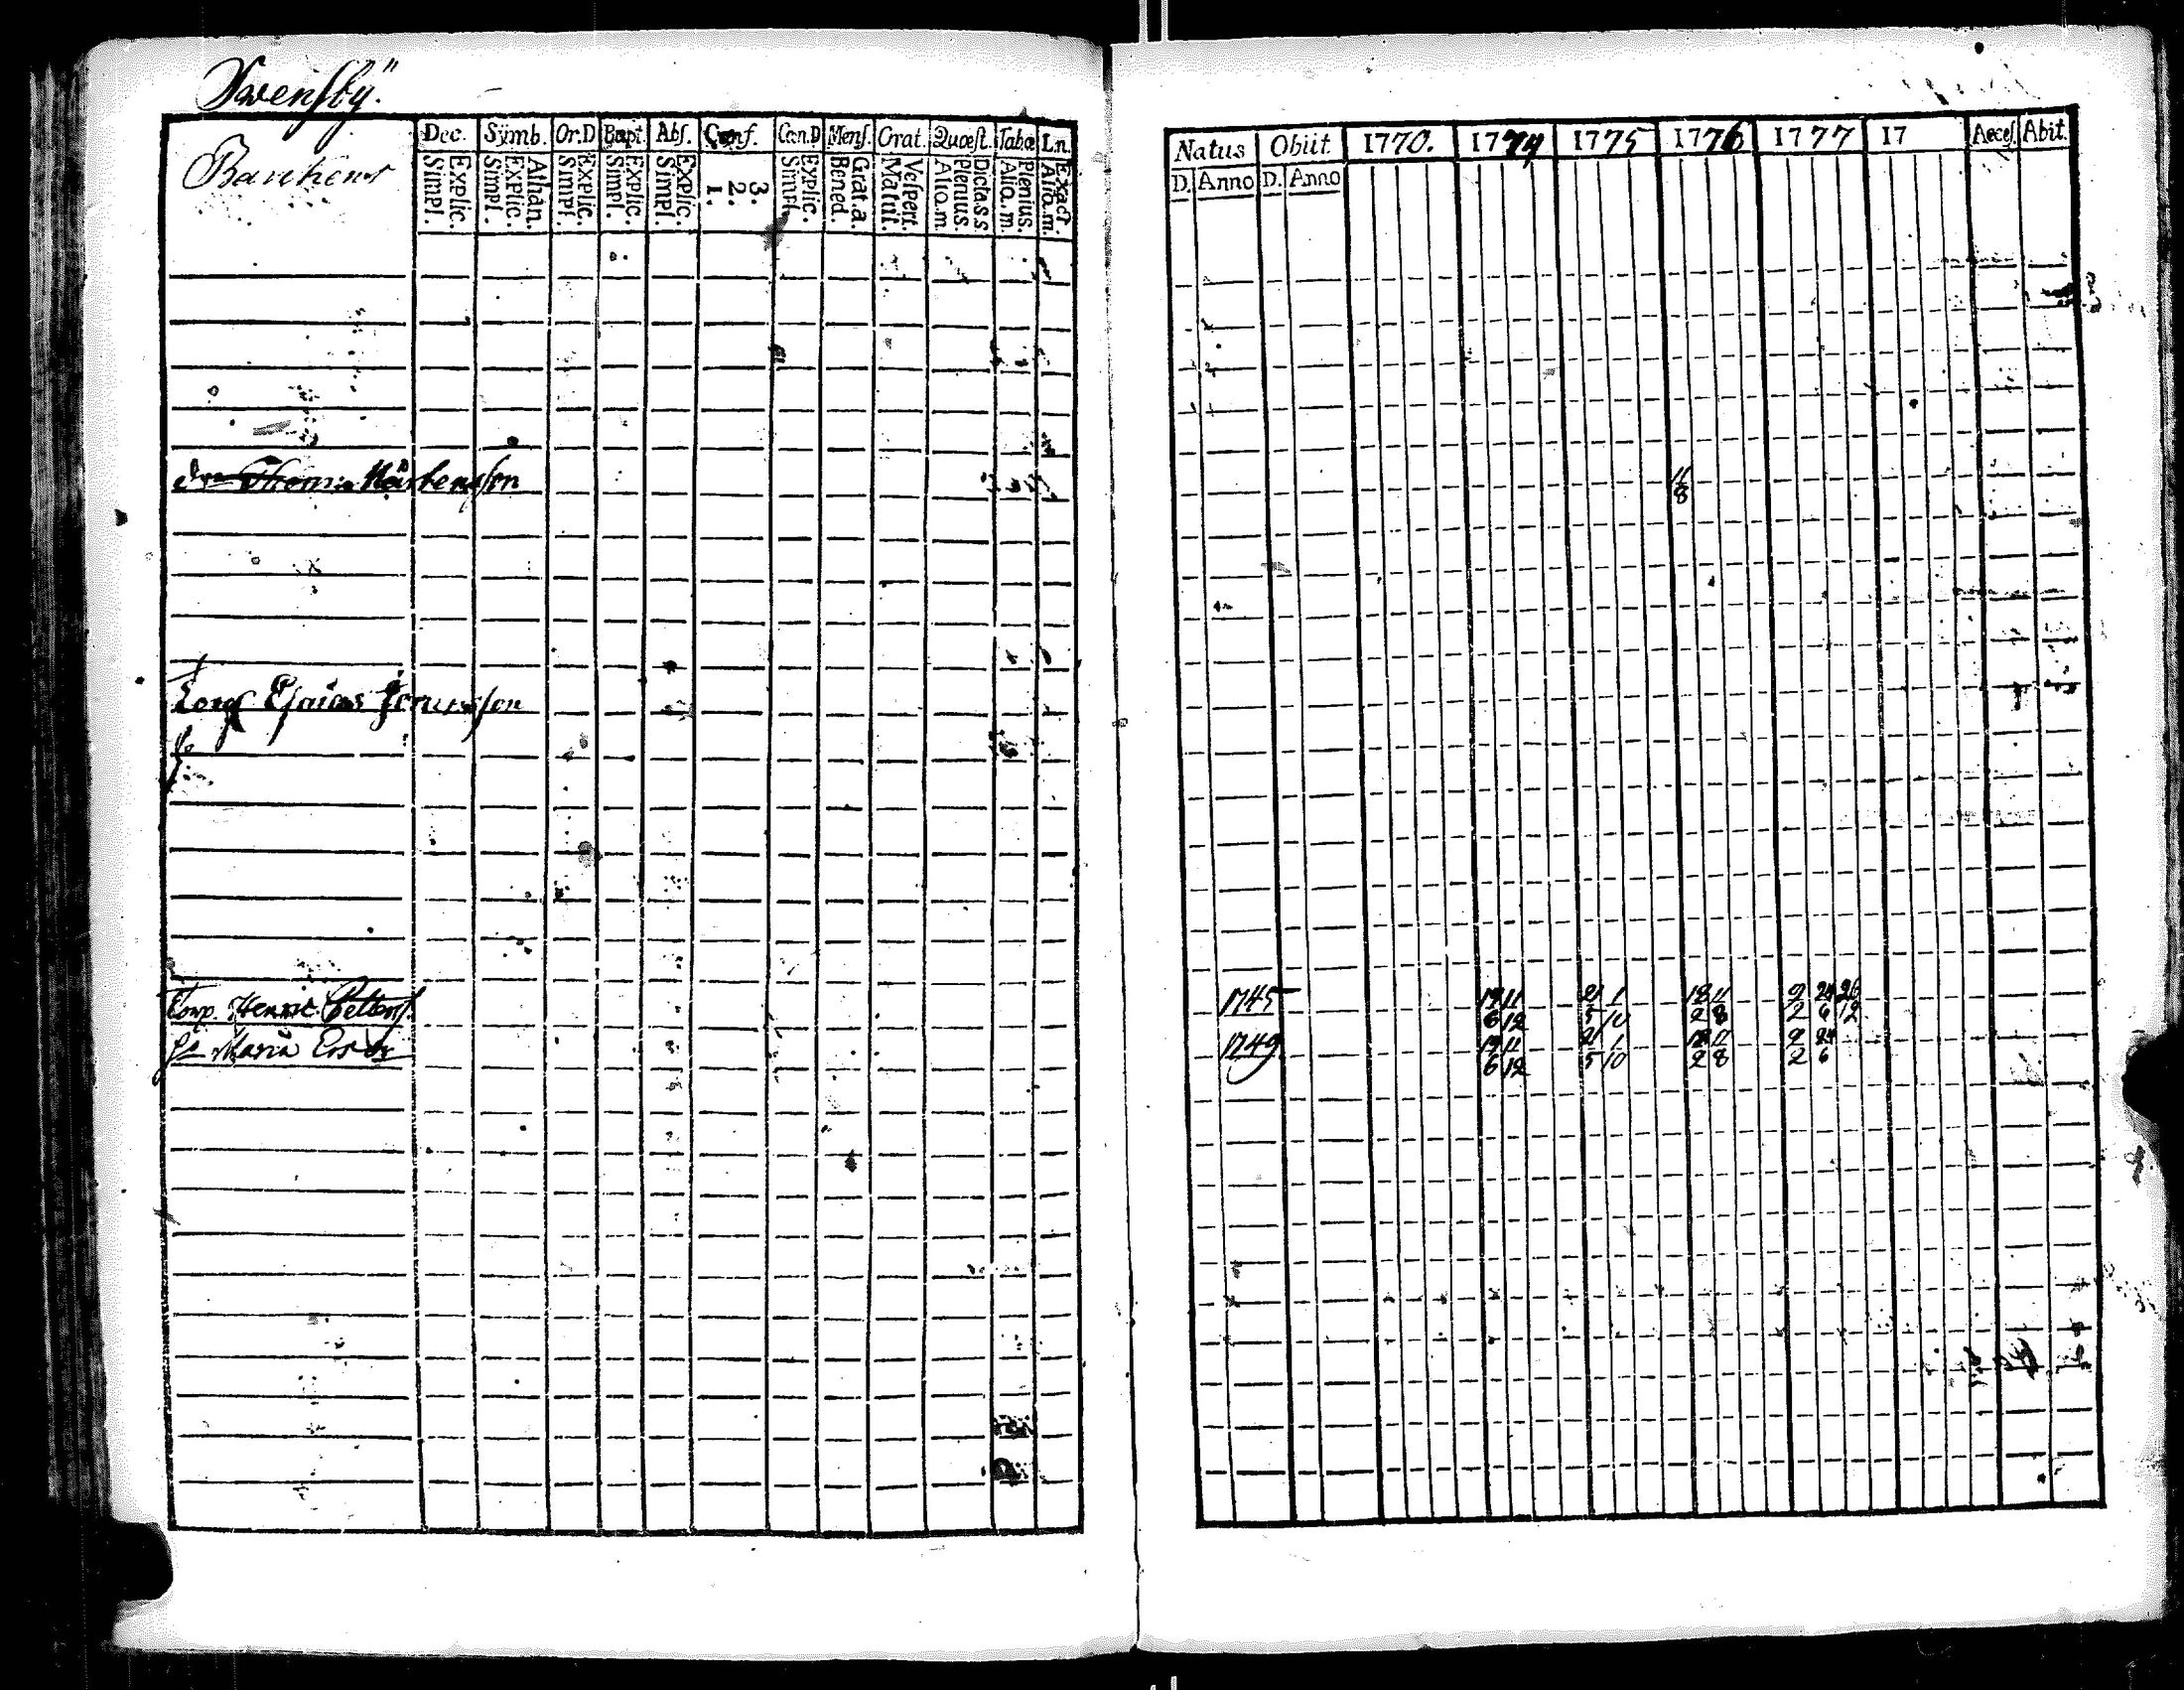 Swensby"
Dec. Symb. Or.D Bapt. Abs. Conf. Can.D Mens. Grat. Quæst. Tabæ Ln.
Simpl. Explic. Simpl. Explic. Athan. Simpl. Explic. Simpl. Explic. Simpl. Explic. 1. 2. 3. Simpl. Explic. Bened. Grat.a. Matut. Vespert. Alio.m Plenius. Dicta.s.s Alio.m Plenius. Alio.m. Exact.
Thom: Mårtensson
Esaias
Corp. Henric Petters.
Maria Ersdr
Natus Obiit 1770. 1774 1775 1776 1777 17 Acces. Abit.
D. Anno D. Anno
11
8
1745 19 11 21 1 18 11 9 24 26
6 12 5 10 2 8 2 6 12
1749 19 11 21 1 18 11 9 24
6 12 5 10 2 8 2 6